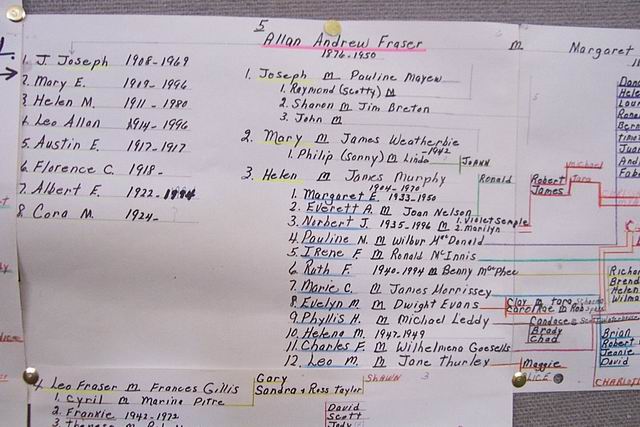 5
Allan Andrew Fraser
1876-1950
m Margaret
1. J. Joseph 1908-1969
2. Mary E. 1909-1996
3. Helen M. 1911-1980
4. Leo Allan 1914-1996
5. Austin E. 1917-1917
6. Florence C. 1918-
7. Albert E. 1922-1994
8. Cora M. 1924-
1. Joseph m Pauline Mayew
1. Raymond (Scotty) m
2. Sharon m Jim Breton
3. John m
2. Mary m James Weatherbie
1. Philip (Sonny) m Linda -1942
JoAnn
3. Helen m James Murphy
1904-1970
Ronald
1. Margaret E. 1933-1950
2. Everett A. m Joan Nelson
3. Norbert J. 1935-1996 m 1. Violet Semple
2. Marilyn
4. Pauline N. m Wilbur McDonald
5. Irene F. m Ronald McInnis
6. Ruth F. 1940-1994 m Benny McPhee
7. Marie C. m James Morrissey
8. Evelyn M. m Dwight Evans
9. Phyllis H. m Michael Leddy
10. Helena M. 1947-1949
11. Charles F. m Wilhelmena Goesells
12. Leo M. m Jane Thurley
Michael
Robert
James
Tara
Clay m Tara
Carol Mae m Rob
Candace
Brady
Chad
Maggie
Alice
Brian
Robert
Jeanie
David
4. Leo Fraser m Frances Gillis
Gary
Sandra + Ross Taylor
Shawn 3
1. Cyril m Marina Pitre
2. Frankie 1942-1972
David
Scott
Jody